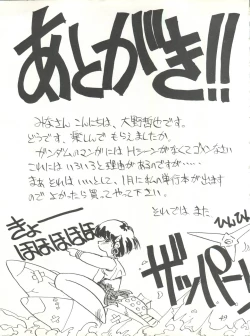 あとがき!!
みなさん こんにちは、大野哲也です。
どうです、楽しんで もらえましたか。
ガンダムのマンガには Hシーンがなくてゴメンなさい
これには いろいろと理由が あるのですが・・・・・
まあ それは いいとして、1月に 私の単行本が出ます
ので よかったら買って やって下さい。
それでは また
きょーー
ほほほほほほ
ひんひん
ザッパー
49